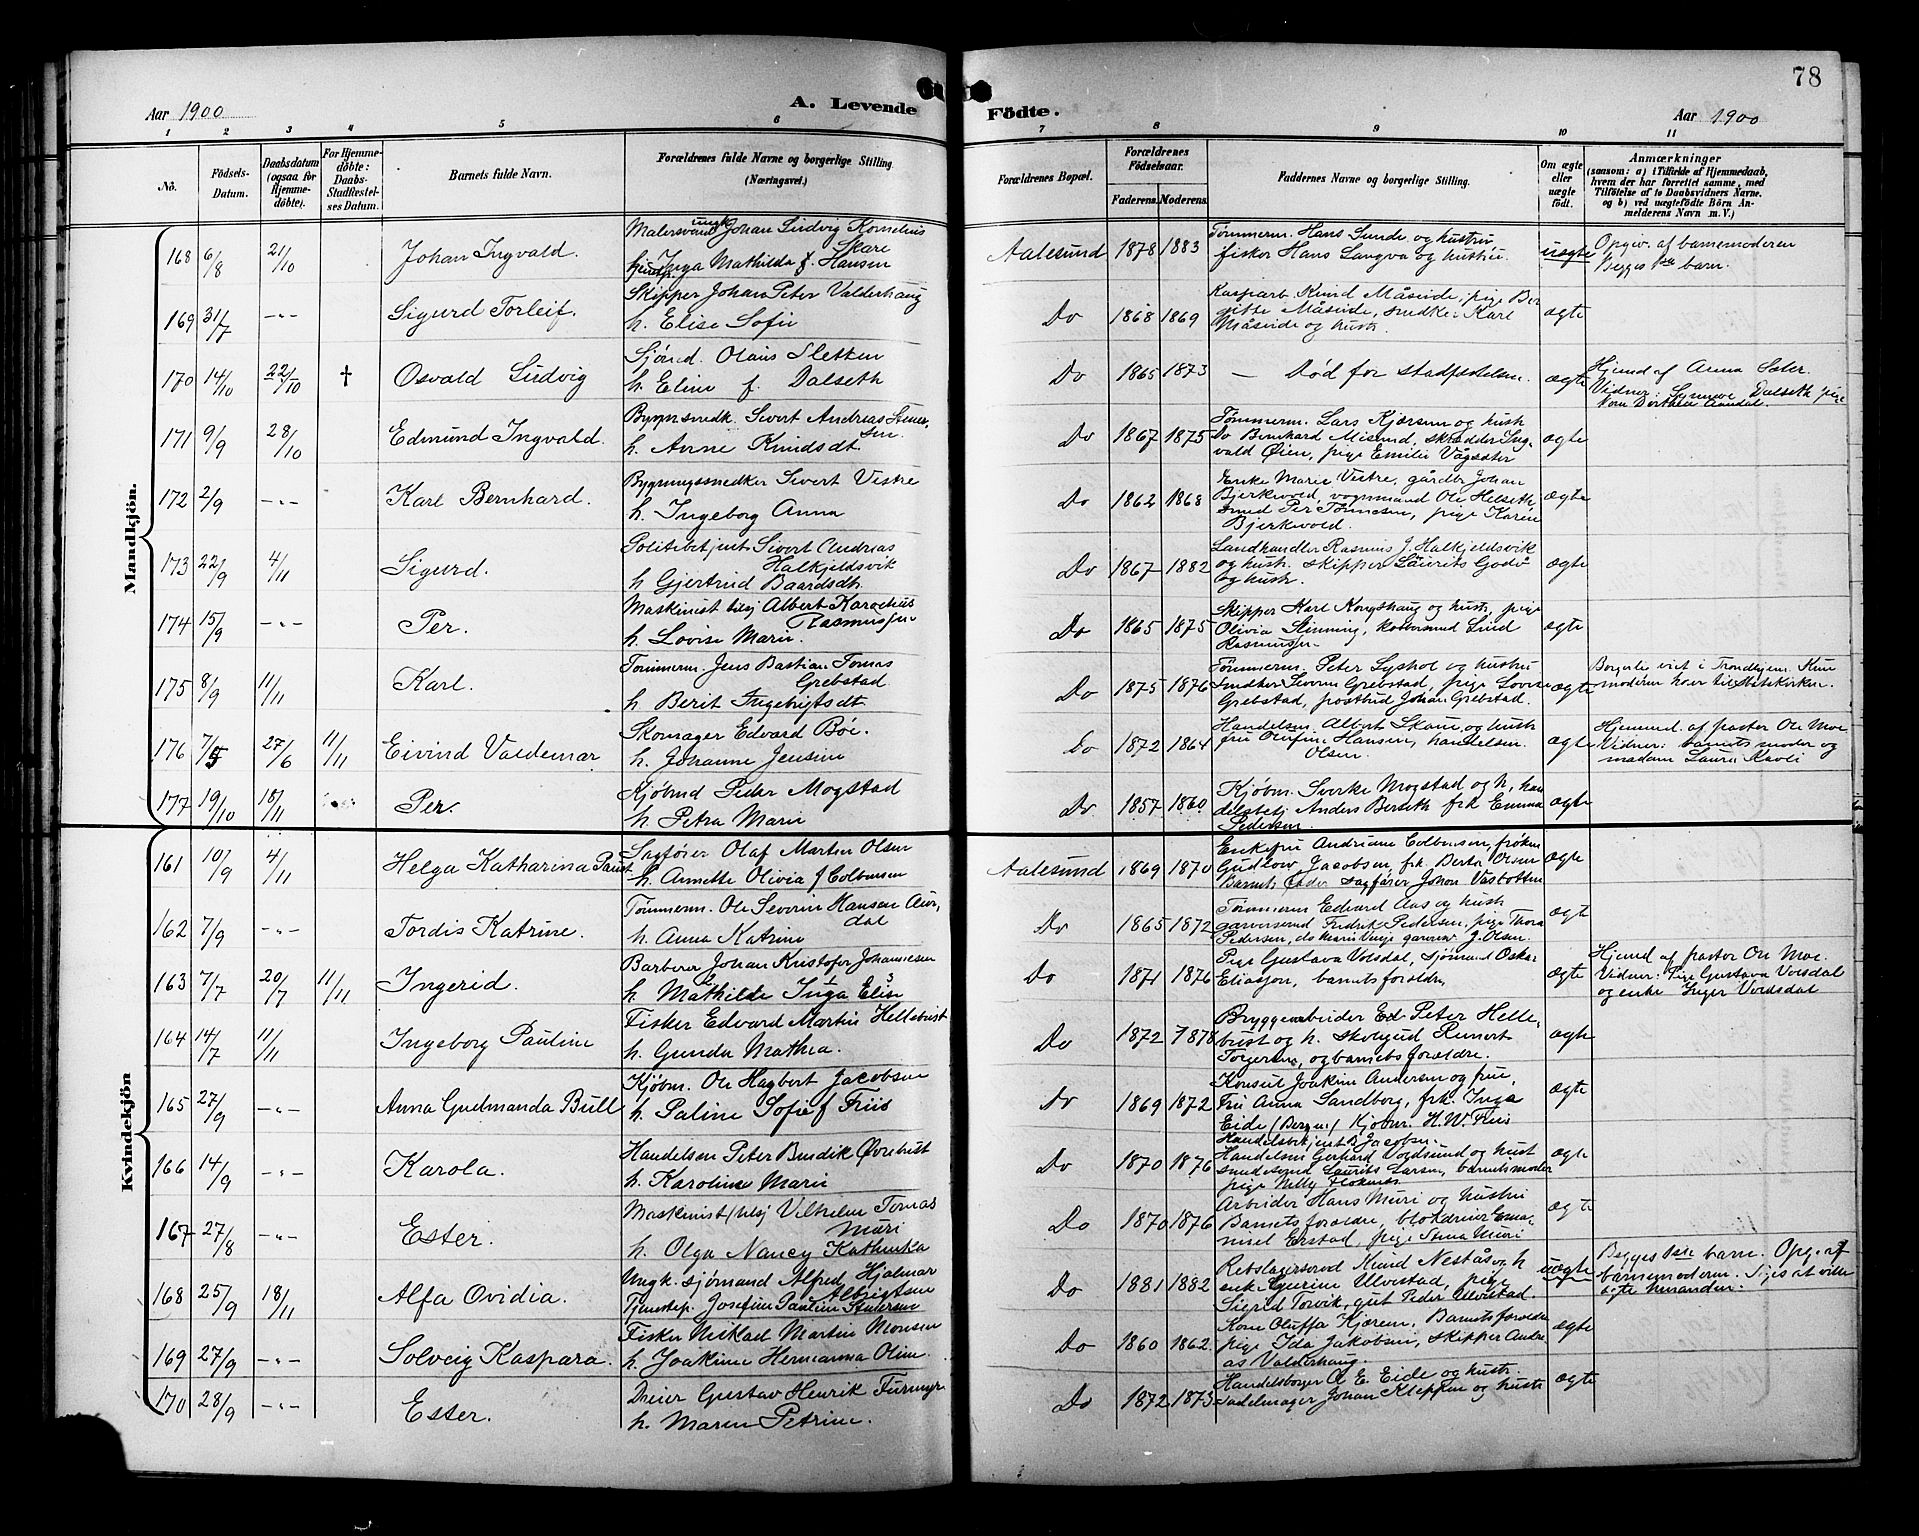 78
Aar 1900
A. Levende
Födte.
Aar 1900
1 2 3 4 5 6 7 8 9 10 11
Nô.
Födsels-Datum.
Daabsdatum (ogsaa for Hjemme-döbte).
For Hjemme-döbte: Daabs-Stadfæstel-ses Datum.
Barnets fulde Navn.
Forældrenes fulde Navne og borgerlige Stilling. (Næringsvei.)
Forældrenes Bopæl.
Forældrenes Födselsaar.
Faderens. Moderens.
Faddernes Navne og borgerlige Stilling.
Om ægte eller uægte födt.
Anmærkninger
(saasom: a) i Tilfælde af Hjemmedaab, hvem der har forrettet samme, med Tilföielse af to Daabsvidners Navne. og b) ved uægtefödte Börn An-melderens Navn m. V.)
Mandkjön.
168 6/8 21/10 Johan Ingvald.
Malersvend ungk Johan Ludvig Kornelius Skare
Inga Mathilda f. Hansen
Aalesund 1878 1883
Tømmerm. Hans Sunde og hustru,
fisker Hans Langva og hustru.
uægte
Opgiv. af barnemoderen
Begges 1ste barn.
169 31/7 -"- Sigurd Torleif.
Skipper Johan Peter Valderhaug
h. Elise Sofie
Do 1868 1869
Måseide og hustr.
ægte
170 14/10 22/10 † Osvald Ludvig
Sjömd. Olaus Sletten
h. Eline f. Dalseth
Do 1865 1873
— Død før stadfæstelsen.
ægte
Hjemd af Anna Sæter.
Vidner: Synneve Dalseth pige
Kone Dorthea Aandal.
171 9/9 28/10 Edmund Ingvald.
Bygnsnedk. Sivert Andreas
h. Anne Knudsdt.
Do 1867 1875
Tømmerm. Lars Kjersem og hust
Do Bernhard Misund, skrædder Ing-
vald Øien, pige Emilie Vågsæter
ægte
172 2/9 -"- Karl Bernhard.
Bygningssnedker Sivert Vestre
h. Ingeborg Anna
Do 1862 1868
Enke Marie Vestre, gårdbr Johan
Bjerkevold, vognmand Ole Helseth,
smed Per Tönnesen, pige Karen
Bjerkevold.
ægte
173 22/9 4/11 Sigurd.
Politibetjent Sivert Andreas
Halkjeldsvik
h Gjertrud Baardsdt.
Do 1867 1882
Landhandler Rasmus J. Halkjeldsvik
og hust. skipper Laurits Godø
og hustr.
ægte
174 15/9 -"- Per.
Maskinist tilsj Albert Karolius
Rasmussen
h. Lovise Marie.
Do 1865 1875
Skipper Karl Kongshaug og hustr, pige
Olivia Slinning, kobbersmed Lund
Rasmussen
ægte
175 8/9 11/11 Karl.
Tømmerm. Jens Bastian Tomas
Grebstad
h. Berit Ingebrigtsdt
Do 1875 1876
Tømmerm. Peter Lyshol og hustru
Snedker Severin Grebstad, pige Lovise
Grebstad, postbud Johan Grebstad.
ægte
Borgerlig viet i Trondhjem. Kun
moderen hører til Statskirken.
176 7/5 27/6 11/11 Eivind Valdemar
Skomager Edvard Böe.
h. Johanne Jensine
Do 1872 1864
Olsen.
ægte
Hjemmd. af pastor Ole Moe
Vidner: barnets moder og
madam Laura Ravli
177 19/10 18/11 Per.
Kjøbmd Peder Mogstad
h Petra Marie
Do 1857 1860
Kjøbm. Sverke Mogstad og h, han-
delsbetj Anders Berseth frk Emma
Pedersen
ægte
Kvindekjön
161 10/9 4/11 Helga Katharina
Sagfører Olaf Martin Olsen
h. Annette Olivia f Colbensen
Aalesund 1869 1870
Enkefru Andriane Colbensen, frøken
Gudlow Jacobsen, frk. Berta Olsen
Barnets fader sagfører Johan Vastotten
ægte
162 7/9 -"- Tordis Katrine.
Tømmerm. Ole Severin Hansen Aur-
dal
h. Anna Katrine
Do 1865 1872
Tømmerm Edvard Aas og hustr
garversvend Fredrik Pedersen, pige Thora
ægte
163 7/7 20/7 11/11 Ingerid.
Barberer Johan Kristofer Johannesen
h. Mathilde Inga Elise
Do 1871 1876
Pige Gustava Volsdal, sjömand Oskar
Eliassen, barnets forældre
ægte
Hjemd af pastor Ole Moe.
Vidner: Pige Gustava Volsdal
og enke Inger Volsdal
164 14/7 11/11 Ingeborg Pauline
Fisker Edvard Martin Hellebust
h. Gunda Mathea.
Do 1872 1878
Bryggearbeider Ed Peter Helle-
bust og h.
Torgersen, og barnets forældre.
ægte
165 27/9 -"- Anna Gudmanda Bull
Kjøbm. Ole Hagbert Jacobsen
h. Paline Sofie f Friis
Do 1869 1872
Konsul Joakim Andersen og frue,
Fru Anna Sandborg, frk. Inga
Eide (Bergen) Kjøbm. H. W. Friis
Handelsbetjent B Jacobsen.
ægte
166 14/9 -"- Karola.
Handelsm Peter Bendik Øvrebust
h. Karoline Marie
Do 1870 1876
smedsvend Laurits Larsen, barnets moder
ægte
167 27/8 -"- Ester.
Maskinist tilsj Vilhelm Tomas
Muri
h. Olga Nancy Kathinka
Do 1870 1876
Arbeider Hans Muri og hustru
Barnets forældre, blokdreier Ema-
nuel Erstad, pige Stina Muri
ægte
168 25/9 18/11 Alfa Ovidia.
Ungk. sjömand Alfred Hjalmar
Albrigtsen
Tjenestep. Josefine Pauline
Do 1881 1882
Rebslagersvend Knud Nestås og h
enk Severine Ulvestad, pige
Sigrid Torvik, gut Peder Ulvestad.
uægte
Begges 1ste barn. Opg. af
barnemoderen. Siges at ville
ægte hinanden.
169 27/9 -"- Solveig Kaspara.
Fisker Mikael Martin Monsen
h. Joakime Hermanna Oline
Do 1860 1862
Kone Oluffa Kjerem, Barnets forældre
pige Ida Jakobsen, skipper Andre-
as Valderhaug.
ægte
170 28/9 -"- Ester.
Dreier Gustav Henrik Furmyr
h. Maren Petrine.
Do 1872 1873
Handelsborger A E Eide og hustr.
Sadelmager Johan Kleppen og hustr
ægte